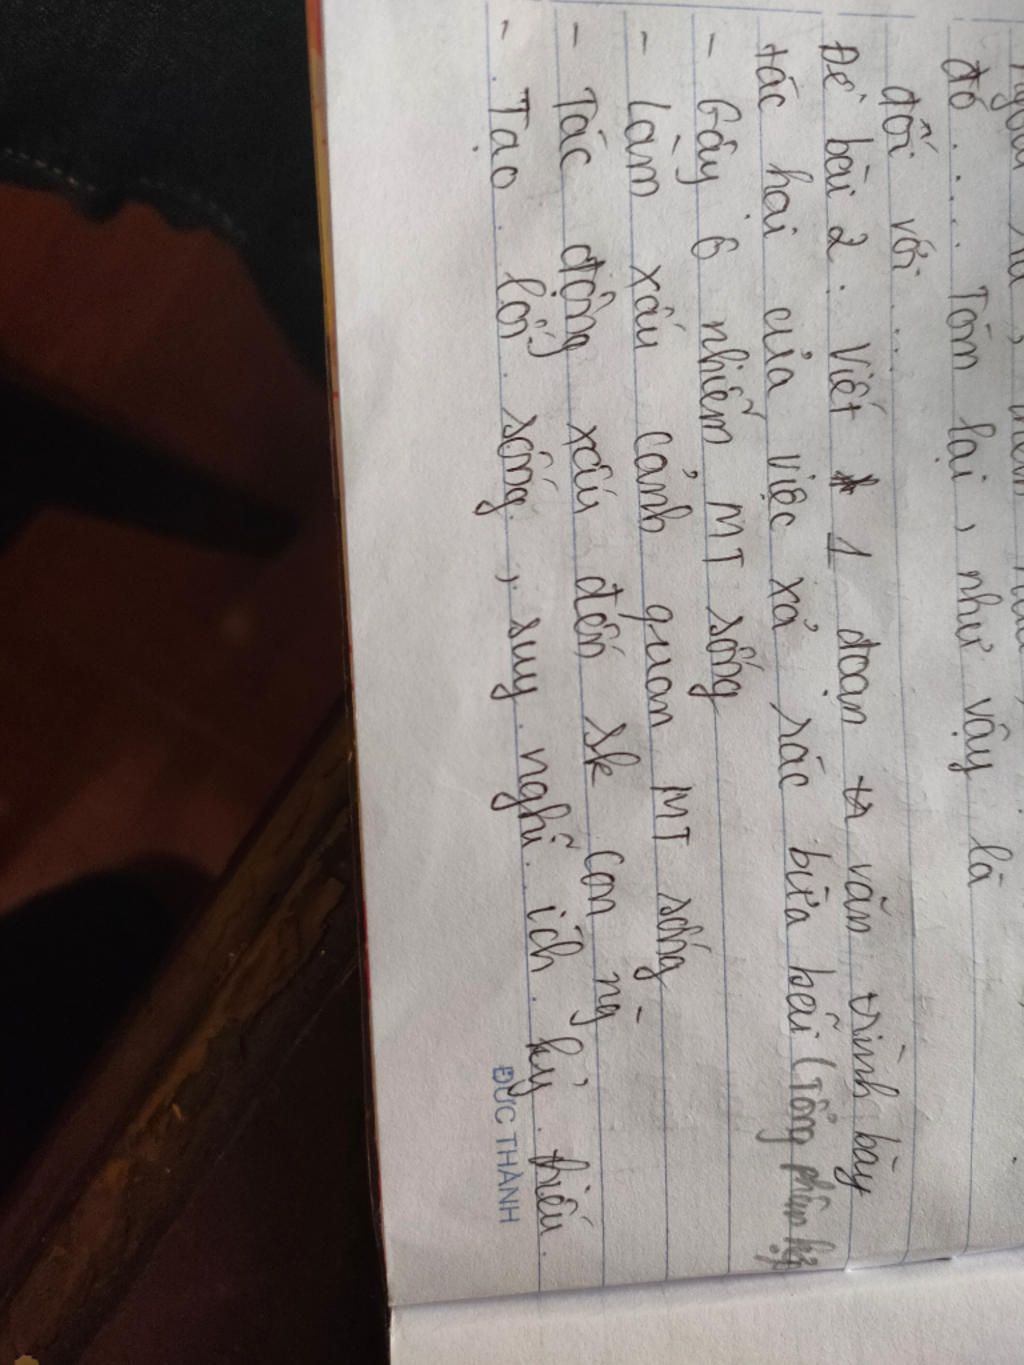 đó..... Tóm lại, như vậy là
đối với....
Đề bài 2. Viết 1 đoạn văn trình bày
tác hại của việc xả rác bừa bãi (Tổng phân hợp
- Gây ô nhiễm MT sống
- Làm xấu cảnh quan MT sống
- Tác động xấu đến sk con ng`
- Tạo lối sống, suy nghĩ ích kỷ
ĐỨC THÀNH